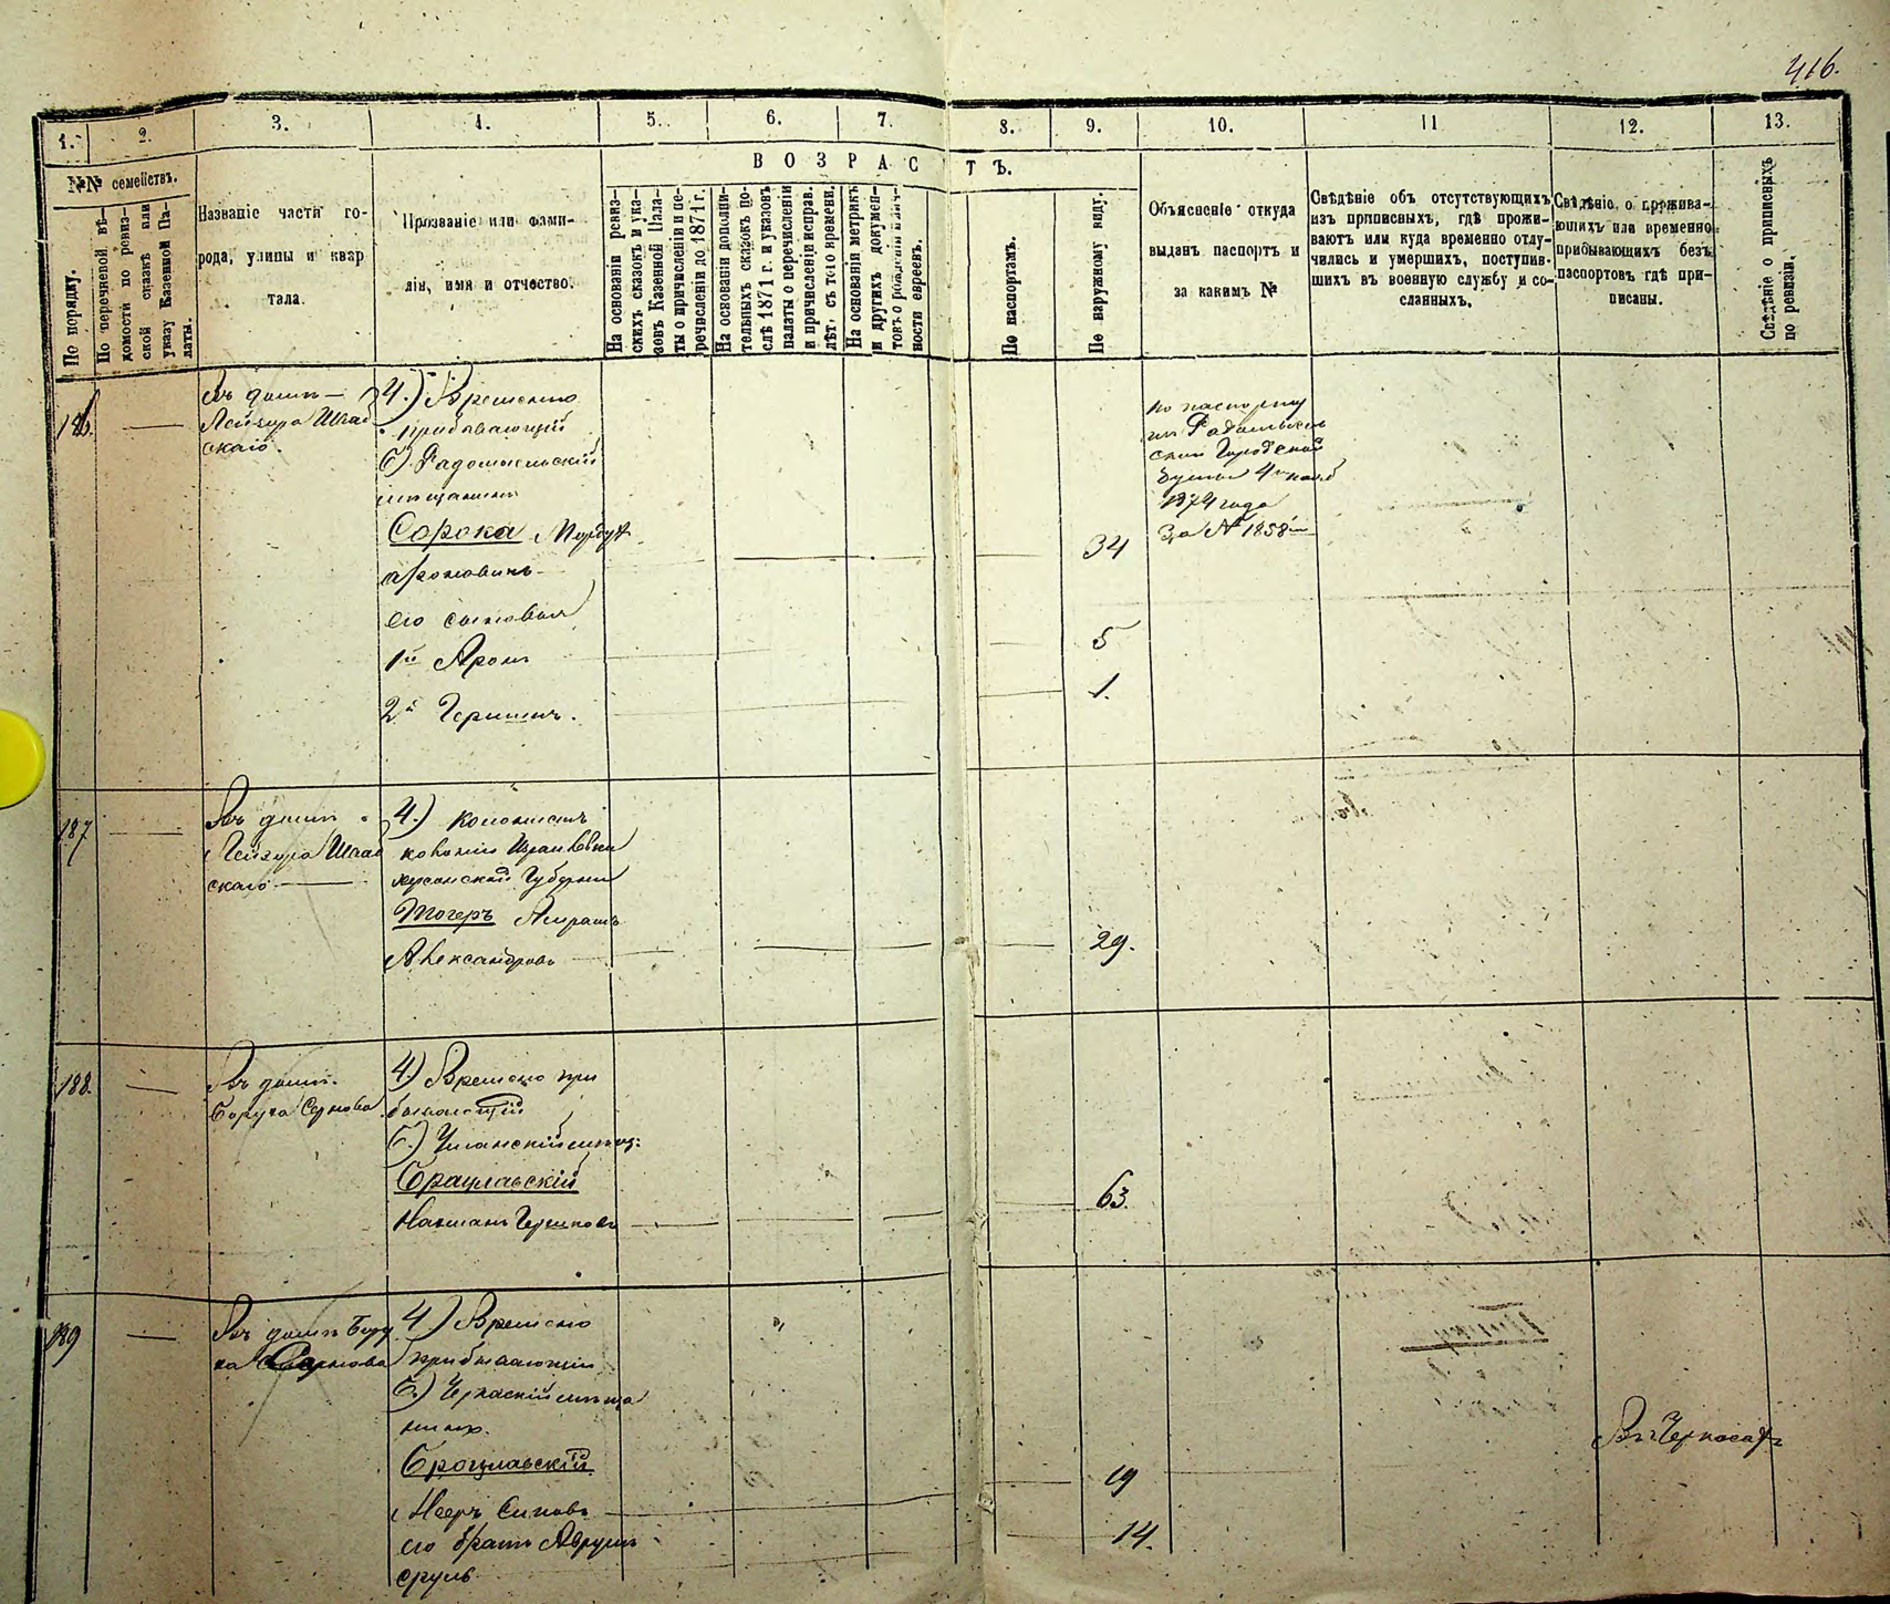 416.
1.
2.
3.
4.
5.
6.
7.
8.
9.
10.
11
12.
13.
№№ семействъ.
По порядку.
По перечневой вѣ-
домости по ревиз-
ской сказкѣ или
указу Казенной Па-
латы.
Названіе части го-
рода, улицы и квар
тала.
Прозваніе или фами-
лія, имя и отчество.
ВОЗРАСТЪ.
На основаніи ревиз-
скихъ сказокъ и ука-
зовъ Казенной Пала-
ты о причисленіи и пе-
речисленіи до 1871 г.
На основаніи дополни-
тельныхъ сказокъ по-
слѣ 1871 г. и указовъ
палаты о перечисленіи
и причисленіи исправ.
лѣт. съ того времени.
На основаніи метрикъ
и другихъ докумен-
товъ о рожденіи
ности евреевъ.
По паспортамъ.
По наружному виду.
Объясненіе откуда
выданъ паспортъ и
за какимъ №
Свѣдѣніе объ отсутствующихъ
изъ приписныхъ, гдѣ прожи-
ваютъ или куда временно отлу-
чились и умершихъ, поступив-
шихъ въ военную службу и со-
сланныхъ.
Свѣдѣніе о прожива-
ющихъ или временно
прибывающихъ безъ
паспортовъ гдѣ при-
писаны.
Свѣдѣніе о приписныхъ
по ревизіи.
186.
Въ домѣ
Лейзера
скаго.
4.) Временно
прибывающій
б) Радомысльскій
мѣщанинъ
Сорока Мордух
Ароновичъ
34
его сыновья
1й Аронъ
5
2й Гершонъ.
1.
по паспорту
изъ Радомысль
ской Городской
Думы 4го нояб
1874 года
За № 1858
187
Въ домѣ
Лейзера
скаго
4.) Колонистъ
колоніи Израилевки
херсонской Губерніи
Тогеръ
Александровъ
29.
188.
Въ домѣ
Баруха
4) Временно при
бывающій
б.) Уманскій мѣщ:
Брацлавскій
Нахманъ Гершковъ
63.
189
Въ домѣ Бару
ха
4) Временно
прибывающій
б.) Черкаскій мѣща
нинъ.
Брацлавскій
Мееръ
19
его братъ Аврумъ
сруль
14.
Въ Черкасахъ